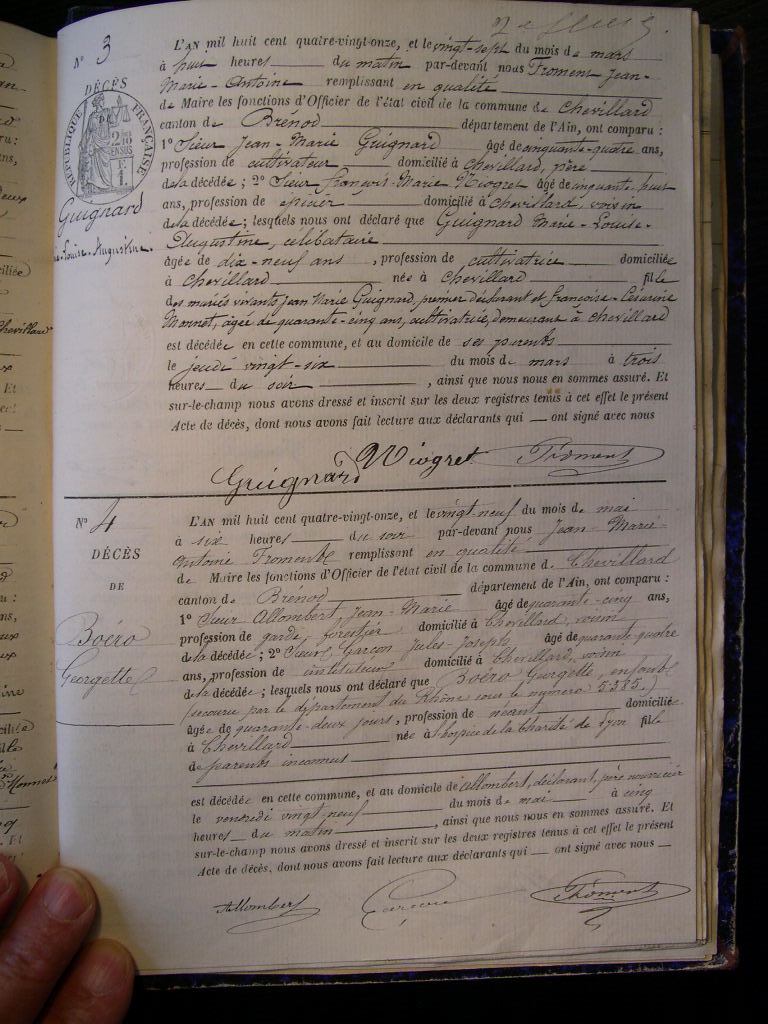 2e feuillet
N° 3
DÉCÈS
DE
RÉPUBLIQUE FRANÇAISE
Guignard
Louise-Augustine.
L'AN mil huit cent quatre-vingt-onze, et le vingt-sept du mois de mars
à huit heures du matin par-devant nous Froment Jean-
Marie-Antoine remplissant en qualité
de Maire les fonctions d'Officier de l'état civil de la commune de Chevillard
canton de Brénod département de l'Ain, ont comparu :
1° Sieur Jean-Marie Guignard âgé de cinquante-quatre ans,
profession de cultivateur domicilié à Chevillard, père
de la décédée ; 2° Sieur François-Marie Niogret âgé de cinquante-huit
ans, profession de épicier domicilié à Chevillard, voisin
de la décédée ; lesquels nous ont déclaré que Guignard Marie-Louise-
Augustine, célibataire
âgée de dix-neuf ans, profession de cultivatrice domiciliée
à Chevillard née à Chevillard fille
des mariés vivants, Jean Marie Guignard, premier déclarant et Françoise-Césarine
Monnet, âgée de quarante-cinq ans, cultivatrice, demeurant à Chevillard
est décédée en cette commune, et au domicile de ses parents
le jeudi vingt-six du mois de mars à trois
heures du soir, ainsi que nous nous en sommes assuré. Et
sur-le-champ nous avons dressé et inscrit sur les deux registres tenus à cet effet le présent
Acte de décès, dont nous avons fait lecture aux déclarants qui ont signé avec nous
Guignard Niogret Froment
N° 4
DÉCÈS
DE
Boéro
Georgette
L'AN mil huit cent quatre-vingt-onze, et le vingt-neuf du mois de mai
à six heures du soir par-devant nous Jean-Marie
Antoine Froment remplissant en qualité
de Maire les fonctions d'Officier de l'état civil de la commune de Chevillard
canton de Brénod département de l'Ain, ont comparu :
1° Sieur Allombert Jean-Marie âgé de quarante-cinq ans,
profession de garde forestier domicilié à Chevillard, voisin
de la décédée ; 2° Sieur Garçon Jules-Joseph âgé de quarante-quatre
ans, profession de instituteur domicilié à Chevillard, voisin
de la décédée ; lesquels nous ont déclaré que Boéro Georgette, enfant
(secourue par le département du Rhône sous le numéro 5385.)
âgée de quarante-deux jours, profession de néant domiciliée
à Chevillard née à hospice de la Charité de Lyon fille
de parents inconnus
est décédée en cette commune, et au domicile de Allombert, déclarant, père nourricier
le vendredi vingt-neuf du mois de mai à cinq
heures du matin, ainsi que nous nous en sommes assuré. Et
sur-le-champ nous avons dressé et inscrit sur les deux registres tenus à cet effet le présent
Acte de décès, dont nous avons fait lecture aux déclarants qui ont signé avec nous
Allombert Garçon Froment